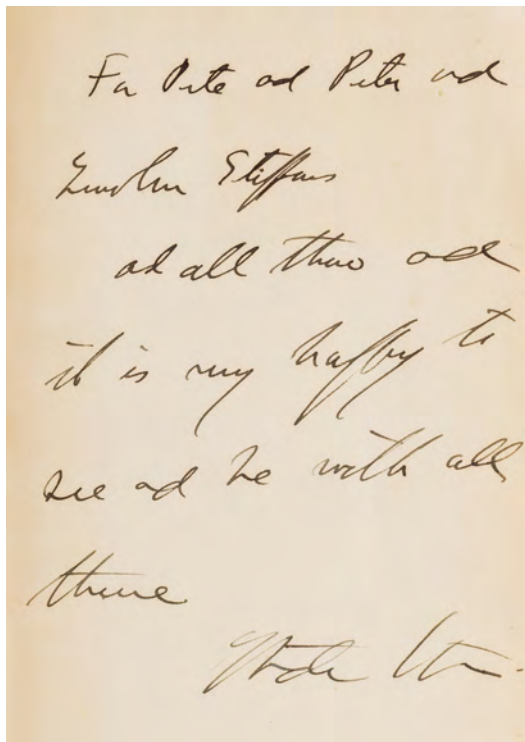 For Pete and Peter and
Lincoln Steffens
and all three and
it is very happy to
see and be with all
three
Gertrude Stein